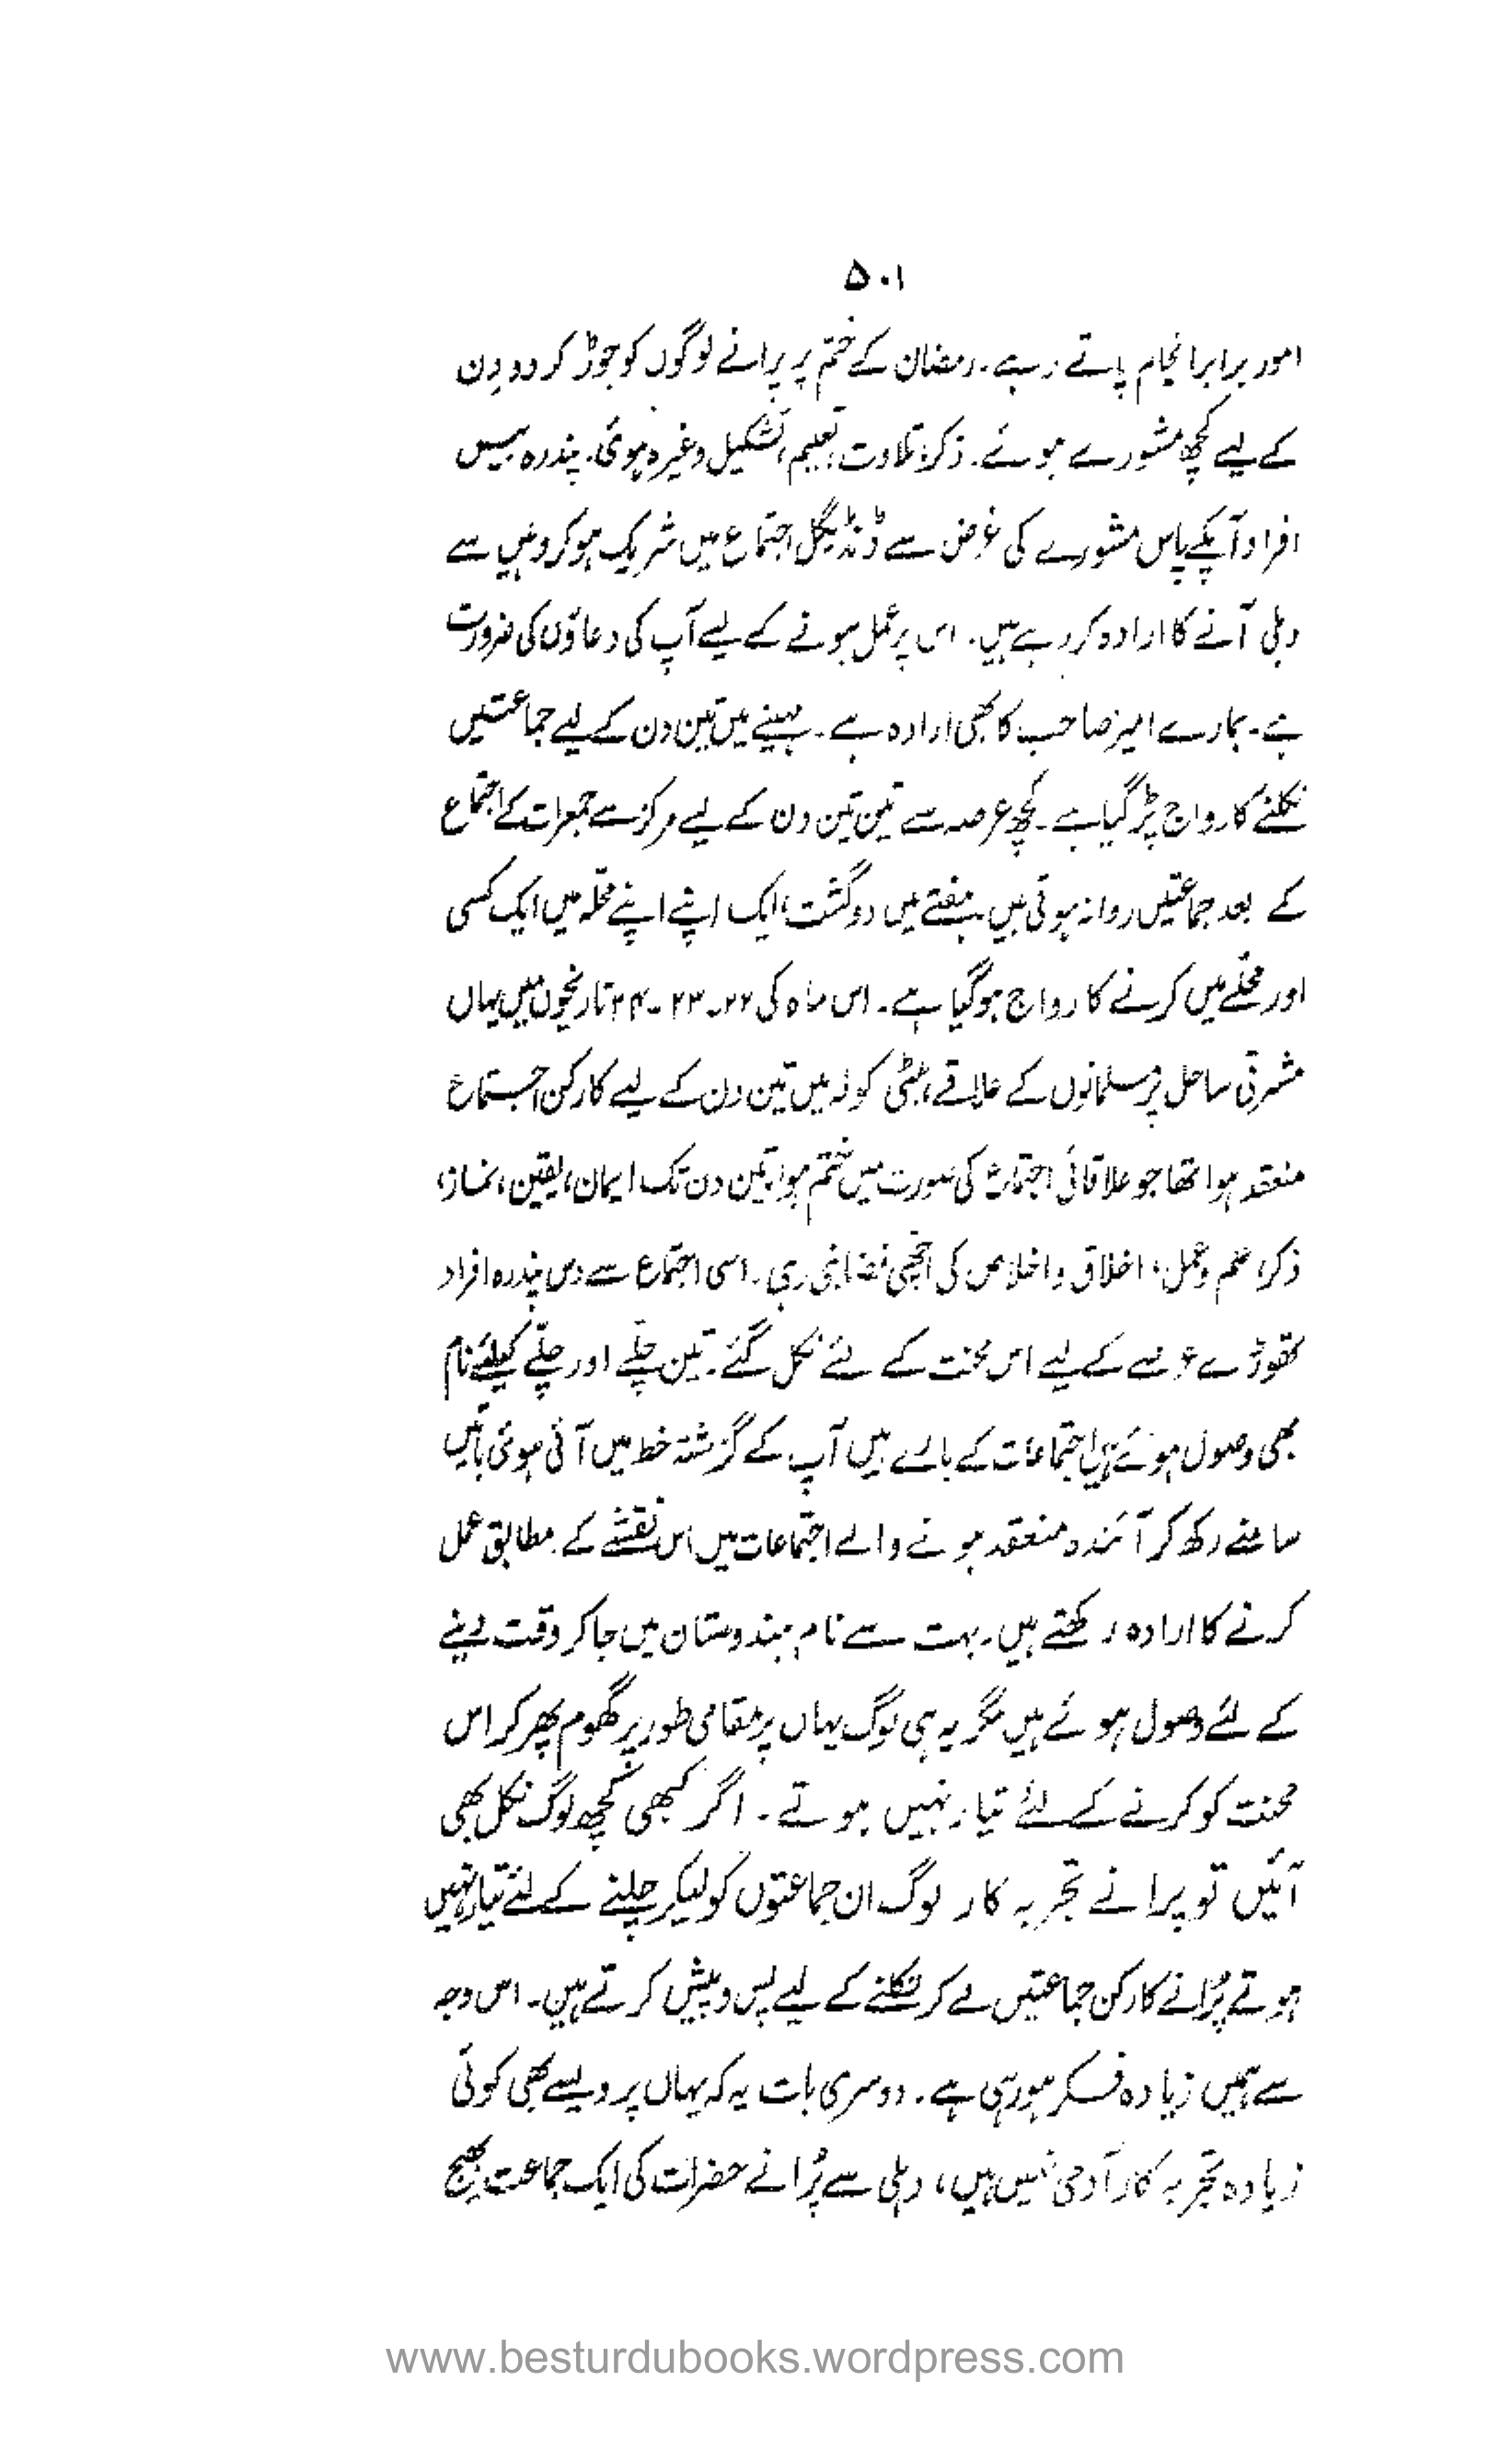 ۵۰۱
امور برابر انجام پاتے رہے۔ رمضان کے ختم پر پرانے لوگوں کو جوڑ کر دو دن
کے لیے کچھ مشورے ہوئے۔ ذکر، تلاوت، تعلیم، تشکیل وغیرہ ہوئی۔ پندرہ بیس
افراد آپکے پاس مشورے کی غرض سے ڈنڈیگل اجتماع میں شریک ہو کر وہیں سے
دہلی آنے کا ارادہ کر رہے ہیں۔ اس پر عمل ہونے کے لیے آپ کی دعاؤں کی ضرورت
ہے۔ ہمارے امیر صاحب کا بھی ارادہ ہے۔ مہینے میں تین دن کے لیے جماعتیں
نکلنے کا رواج پڑ گیا ہے۔ کچھ عرصہ سے تین تین دن کے لیے مرکز سے جمعرات کے اجتماع
کے بعد جماعتیں روانہ ہوتی ہیں۔ ہفتے میں دو گشت، ایک اپنے اپنے محلہ میں ایک کسی
اور محلّے میں کرنے کا رواج ہوگیا ہے۔ اس ماہ کی ۲۲۔ ۲۳۔ ۲۴ تاریخوں میں یہاں
مشرقی ساحل پر مسلمانوں کے علاقے، مٹی کولہ میں تین دن کے لیے کارکن اجتماع
منعقد ہوا تھا جو علاقائی اجتماع کی صورت میں ختم ہوا، تین دن تک ایمان، یقین، نماز،
ذکر، علم و عمل، اخلاق و اخلاص کی اچھی فضا بنی رہی۔ اسی اجتماع سے دس پندرہ افراد
تھوڑے عرصے کے لیے اس محنت کے لئے نکل گئے۔ تین چلّے اور چلّے کیلئے نام
بھی وصول ہوئے ہیں اجتماعات کے بارے میں آپ کے گزشتہ خط میں آئی ہوئی باتیں
سامنے رکھ کر آئندہ منعقد ہونے والے اجتماعات میں اس نقشے کے مطابق عمل
کرنے کا ارادہ رکھتے ہیں۔ بہت سے نام ہندوستان میں جا کر وقت دینے
کے لئے وصول ہوئے ہیں مگر یہ ہی لوگ یہاں پر مقامی طور پر گھوم پھر کر اس
محنت کو کرنے کے لئے تیار نہیں ہوتے۔ اگر کبھی کچھ لوگ نکل بھی
آئیں تو پرانے تجربہ کار لوگ ان جماعتوں کو لیکر چلنے کے لئے تیار نہیں
ہوتے پُرانے کارکن جماعتیں لے کر نکلنے کے لیے پس و پیش کرتے ہیں۔ اس وجہ
سے ہمیں زیادہ فکر ہو رہی ہے۔ دوسری بات یہ کہ یہاں پر ویسے بھی کوئی
زیادہ تجربہ کار آدمی نہیں ہیں، دہلی سے پُرانے حضرات کی ایک جماعت بھیج
www.besturdubooks.wordpress.com